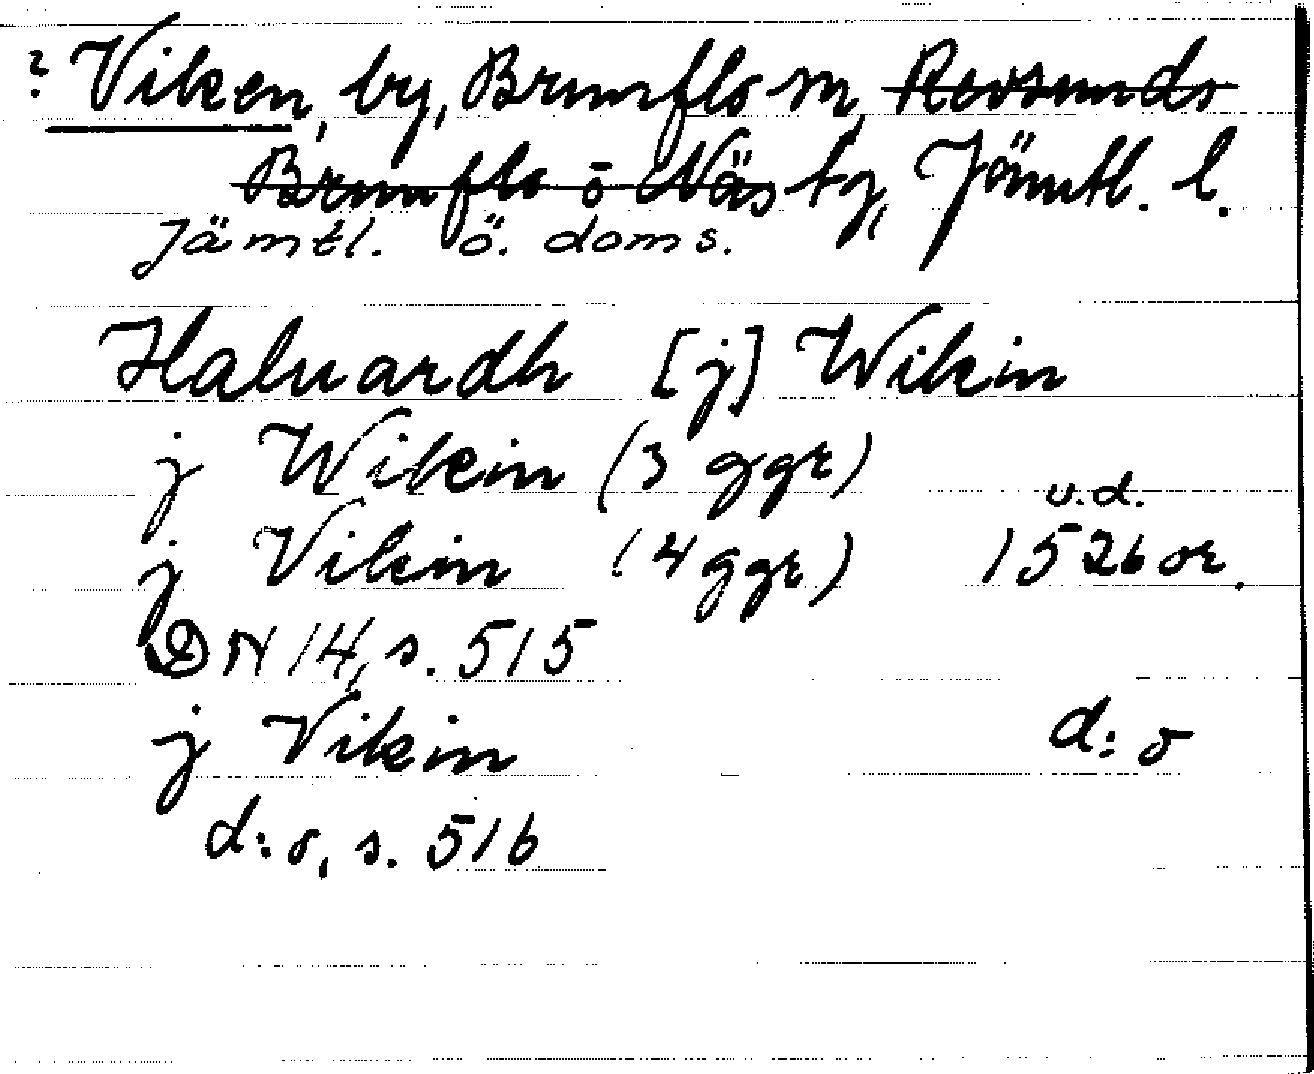 ? Viken, by, Brunflo sn, Revsunds
Brunflo o Näs tg, Jämtl. l.
Jämtl. ö. doms.
Haluardh [j] Wikin
j Wikin (3 ggr)
u.d.
j Vikin (4 ggr) 1526 or.
DN 14, s. 515
j Vikin d:o
d:o, s. 516